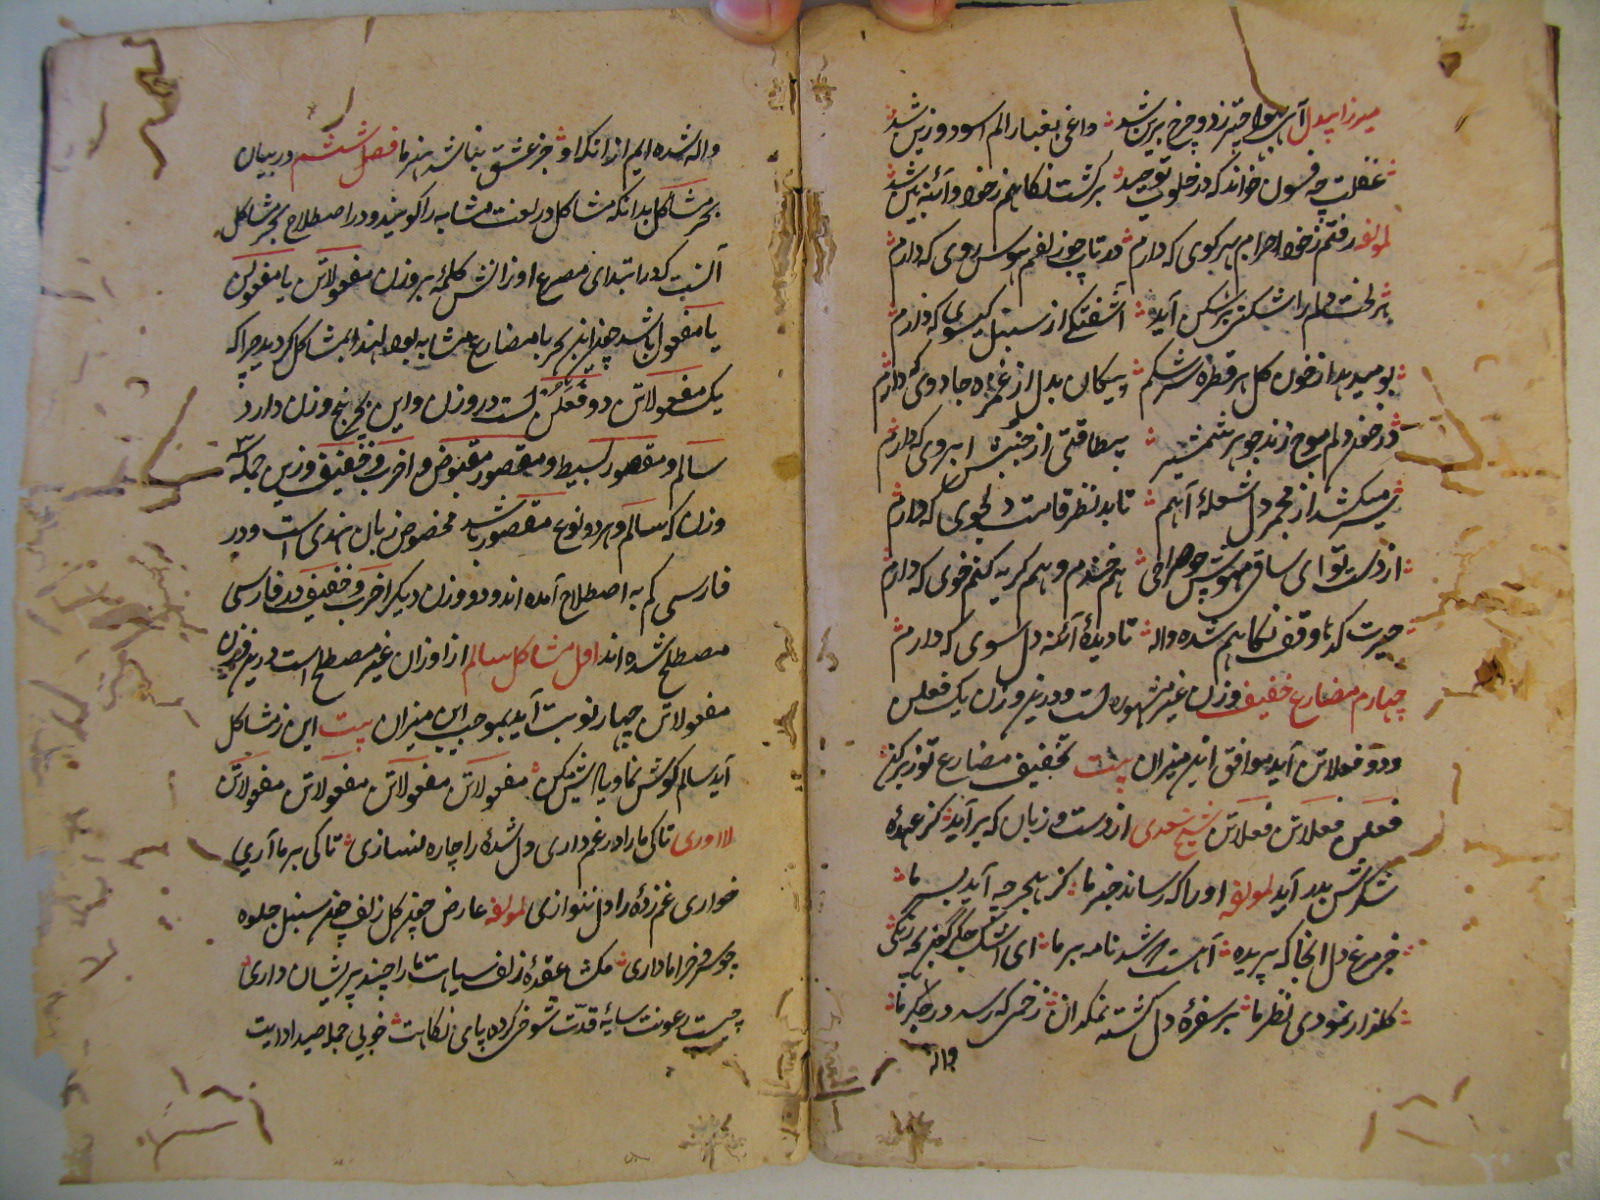 میرزا بیدل آن شد داغی بغبار الم اسود و زین شد
غفلت چه فسون خواند که در خلوت توحید برگشت نگاهم ز خود و آئنه بین شد
لمولفه رفتم ز خود احرام بهر کوی که دارم در تاب چو زلفم هوس روی که دارم
هر لخت دلم را شکن بر شکن آید آشفتگی از سنبل گیسوی که دارم
بو میدهد از خون گل هر قطرهٔ اشکم پیکان بدل از غمزهٔ جادوی که دارم
در خون دلم موج زند جوهر شمشیر بیطاقتی از جنبش ابروی که دارم
سر میکشد از مجمر دل شعلهٔ آهم تا بد نظر قامت دلجوی که دارم
از دست تو ای ساقی مهوش چو صراحی هم خندم و هم گریه کنم خوی که دارم
حیرت کدهٔ وقف نگاهم شده واله تا دیدهٔ آئنه دل سوی که دارم
چهارم مضارع خفیف وزن غیر مشهوره است و درین وزن یک فعلن
و دو فعلاتن آید موافق این میزان بیت تخفیف مضارع تو زبر کن
فعلن فعلاتن فعلاتن شیخ سعدی از دست و زبان که برآید کز عهدهٔ
شکرش بدر آید لمولفه او را که رساند خبر ما کز هجر چه آید بسر ما
جز مرغ دل آنجا که پریده آهست شد نامه بر ما ای اشک جگر گون
گلزار نمودی نظر ما بر سفرهٔ دل گشته نمکدان زخمی که رسد در جگر ما
واله
واله شده ایم از آنکه او جز عشق نباشد هنر ما فصل ششم در بیان
بحر مشاکل بدانکه مشاکل در لغت مشابه را گویند و در اصطلاح بحر مشاکل
آنست که در ابتدای مصرع اوزانش کلمهٔ بر وزن مفعولاتن یا مفعولن
یا مفعول باشد چون این بحر با مضارع مشابه بود لهذا بمشاکل گردید چرا که
یک مفعولاتن دو فعلن است در وزن و این بحر پنج وزن دارد
سالم و مقصور بسیط و مقصور مقبوض و اخرب و خفیف و زین جمله ۳
وزن که سالم و هر دو نوع مقصور باشد مخصوص زبان هندی است و در
فارسی کم به اصطلاح آمده اند و دو وزن دیگر اخرب و خفیف در فارسی
مصطلح شده اند اول مشاکل سالم از اوزان غیر مصطلح است درین وزن
مفعولاتن چهار نوبت آید بموجب این میزان بیت این ز مشاکل
آید سالم گوش نما و یا انش کن مفعولاتن مفعولاتن مفعولاتن مفعولاتن
لا ادری تا کی ما را در غم داری دل شدهٔ را چاره نسازی تا کی بر ما آری
خواری غمزدهٔ را دل ننوازی لمولفه عارض چون گل زلف چون سنبل جلوه
چو فرما داری مگشا عقدهٔ زلف سیاهت ما را چند پریشان داری
چست رعونت سایهٔ قدت شوخی کرده پای نگاهت خوبی جمله صید ادایت